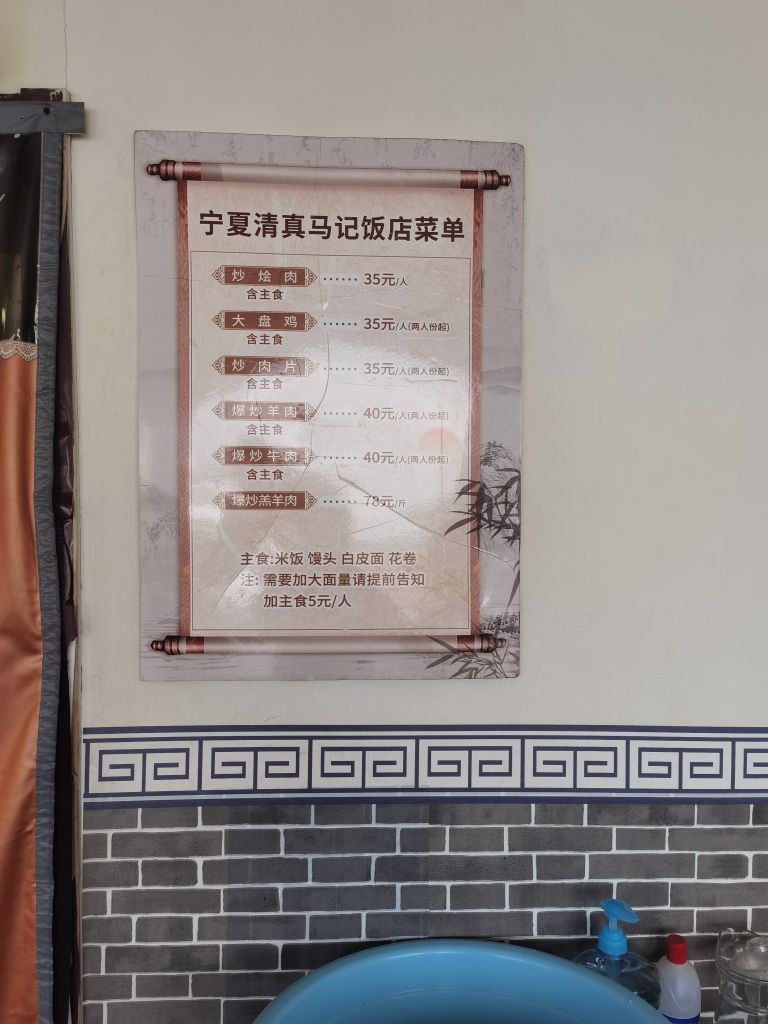 宁夏清真马记饭店菜单
炒烩肉 ······ 35元/人
含主食
大盘鸡 ······ 35元/人(两人份起)
含主食
炒肉片 ······ 35元/人(两人份起)
含主食
爆炒羊肉 ······ 40元/人(两人份起)
含主食
爆炒牛肉 ······ 40元/人(两人份起)
含主食
爆炒羔羊肉 ······ 78元/斤
主食:米饭 馒头 白皮面 花卷
注: 需要加大面量请提前告知
加主食5元/人